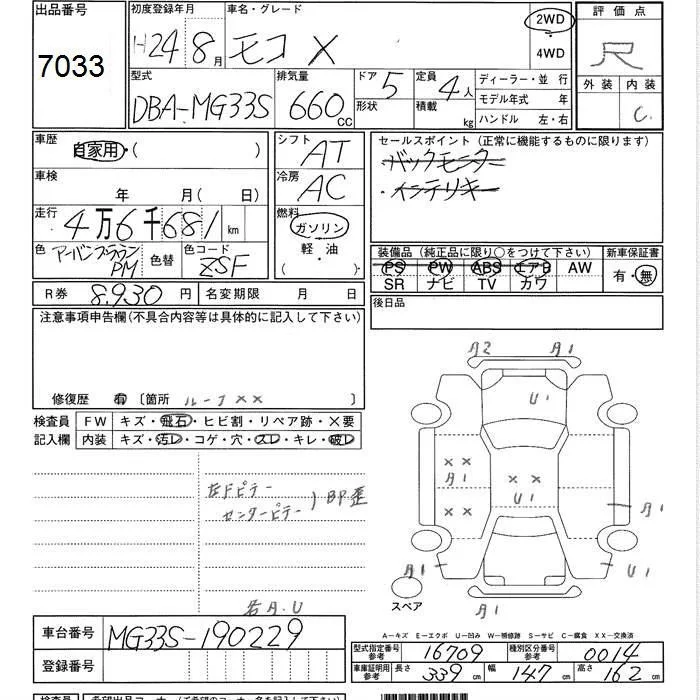 出品番号
7033
初度登録年月
H24年8月
車名・グレード
モコ X
2WD
4WD
評価点
R
外装 内装
C
型式
DBA-MG33S
排気量
660 CC
ドア 5
形状
定員 4人
積載 kg
ディーラー・並行
モデル年式 年
ハンドル 左・右
車歴
自家用・( )
車検
年 月( 日)
走行
4万6千681 km
色 アーバンブラウンPM
色替
色コード
ZSF
シフト
AT
冷房
AC
燃料
ガソリン
軽・油
( )
セールスポイント (正常に機能するものに限ります)
・バックモニター
・インテリキー
装備品 (純正品に限り○をつけて下さい)
PS PW ABS エアB AW
SR ナビ TV カワ
新車保証書
有・無
R券 8,930 円
名変期限 月 日
後日品
注意事項申告欄(不具合内容等は具体的に記入して下さい)
修復歴 有 〔箇所 ルーフ××〕
検査員
記入欄
FW キズ・飛石・ヒビ割・リペア跡・×要
内装 キズ・汚レ・コゲ・穴・スレ・キレ・破レ
左Fピラー
センターピラー
BP歪
右A.U
A2 A1
U1
×× ××
A1 U1
×× A1
A1 U1
A1
スペア
A－キズ E－エクボ U－凹み W－補修跡 S－サビ C－腐食 XX－交換済
車台番号
MG33S-190229
登録番号
型式指定番号
参考
16709
種別区分番号
参考
0014
車庫証明用
参考
長さ 339 cm
幅 147 cm
高さ 162 cm